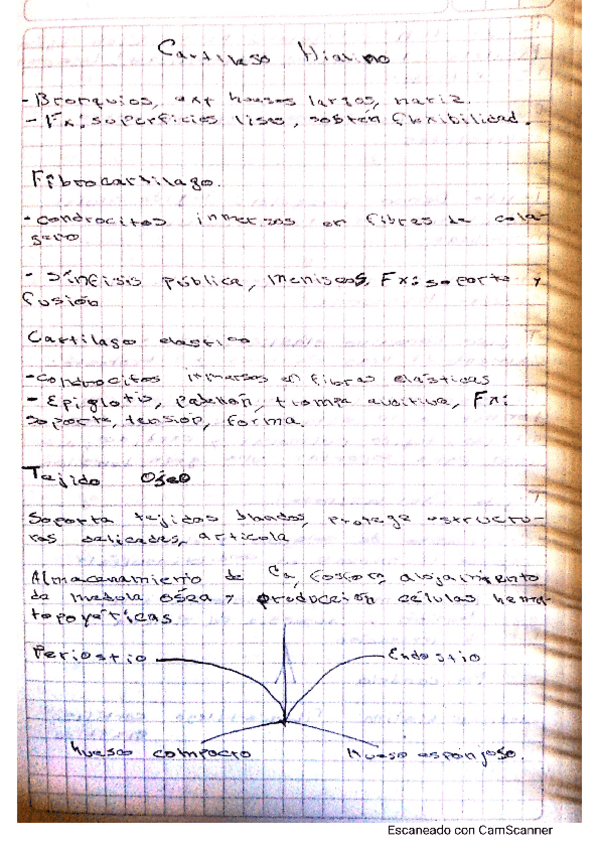 Cartilago Hialino
- Bronquios, ext huesos largos, nariz.
- Fx: superficies lisas, sosten flexibilidad.
Fibrocartilago.
- Condrocitos inmersos en fibras de cola-
geno
- Sínfisis pública, meniscos, Fx: soporte y
fusión
Cartilago elastico
- Condrocitos inmersos en fibras elásticas
- Epiglotis, pabellón, trompa auditiva, Fx:
soporte, tensión, forma.
Tejido Oseo
Soporta tejidos blandos, protege estructu-
ras delicadas, articola
Almacenamiento de Ca, fosforo, alojamiento
de medula osea y producción células hema-
topoyéticas
Periostio
Endostio
hueso compacto
Hueso esponjoso.
Escaneado con CamScanner